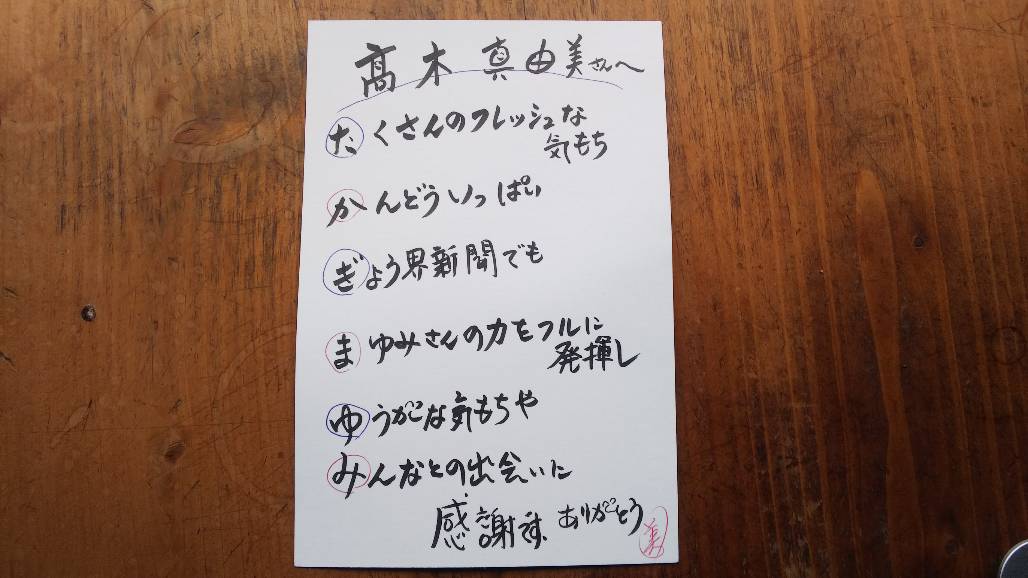 髙木 真由美さんへ
たくさんのフレッシュな
気もち
かんどういっぱい
ぎょう界新聞でも
まゆみさんの力をフルに
発揮し
ゆうがな気もちや
みんなとの出会いに
感謝です、ありがとう